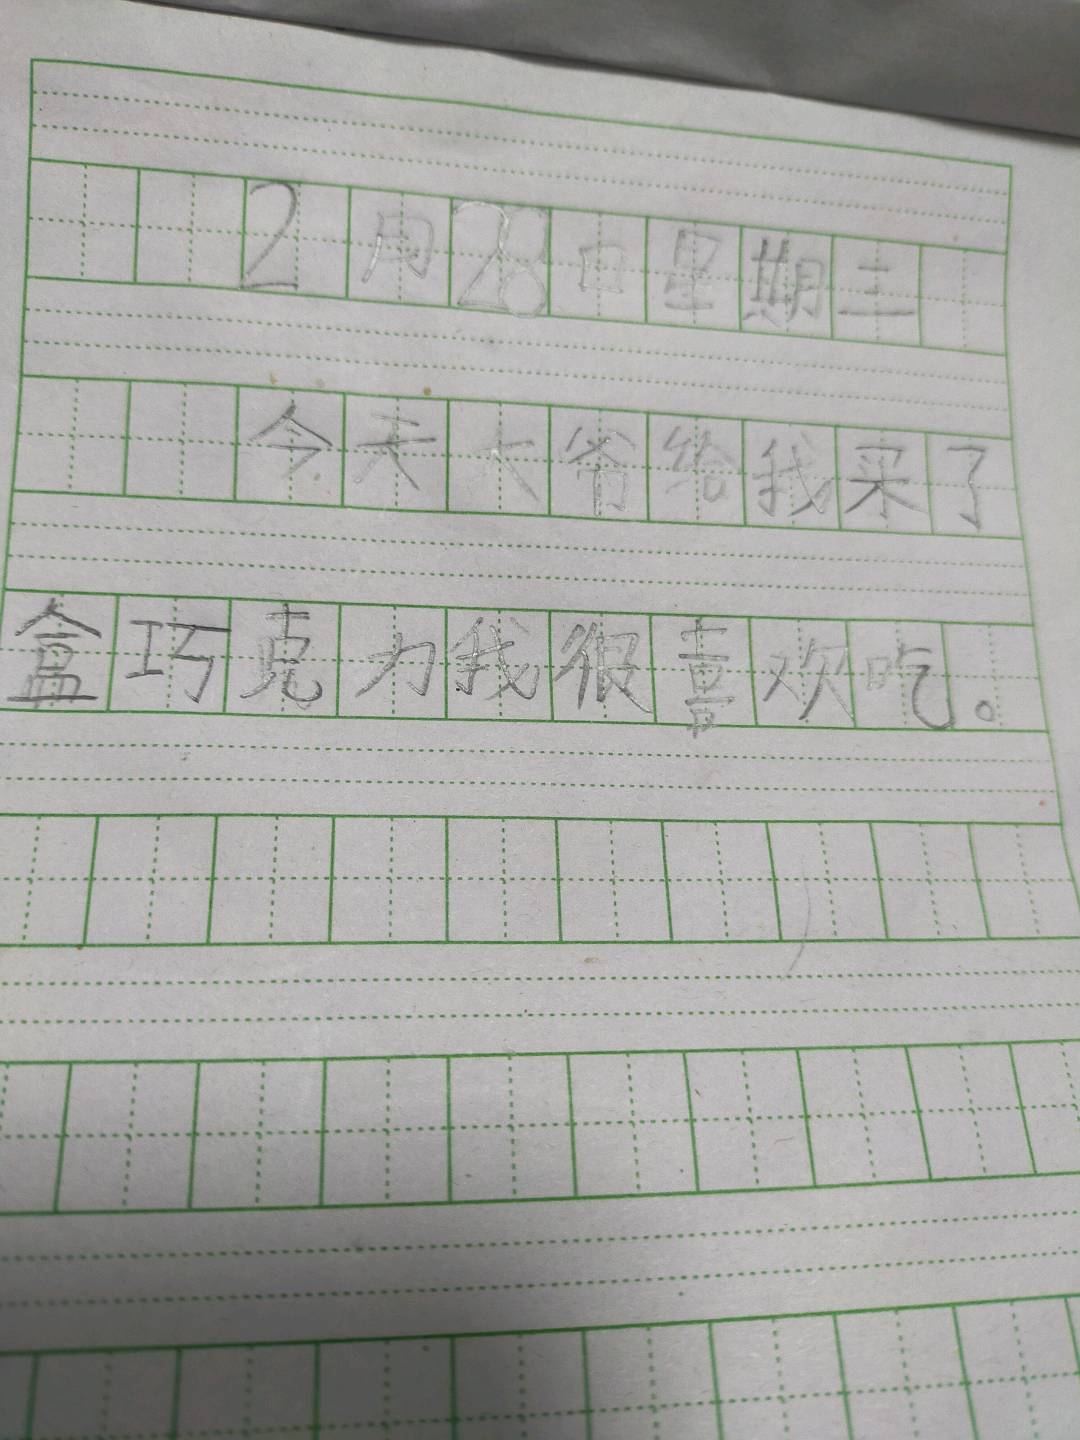 2月28日星期三
今天大爷给我买了
盒巧克力我很喜欢吃。